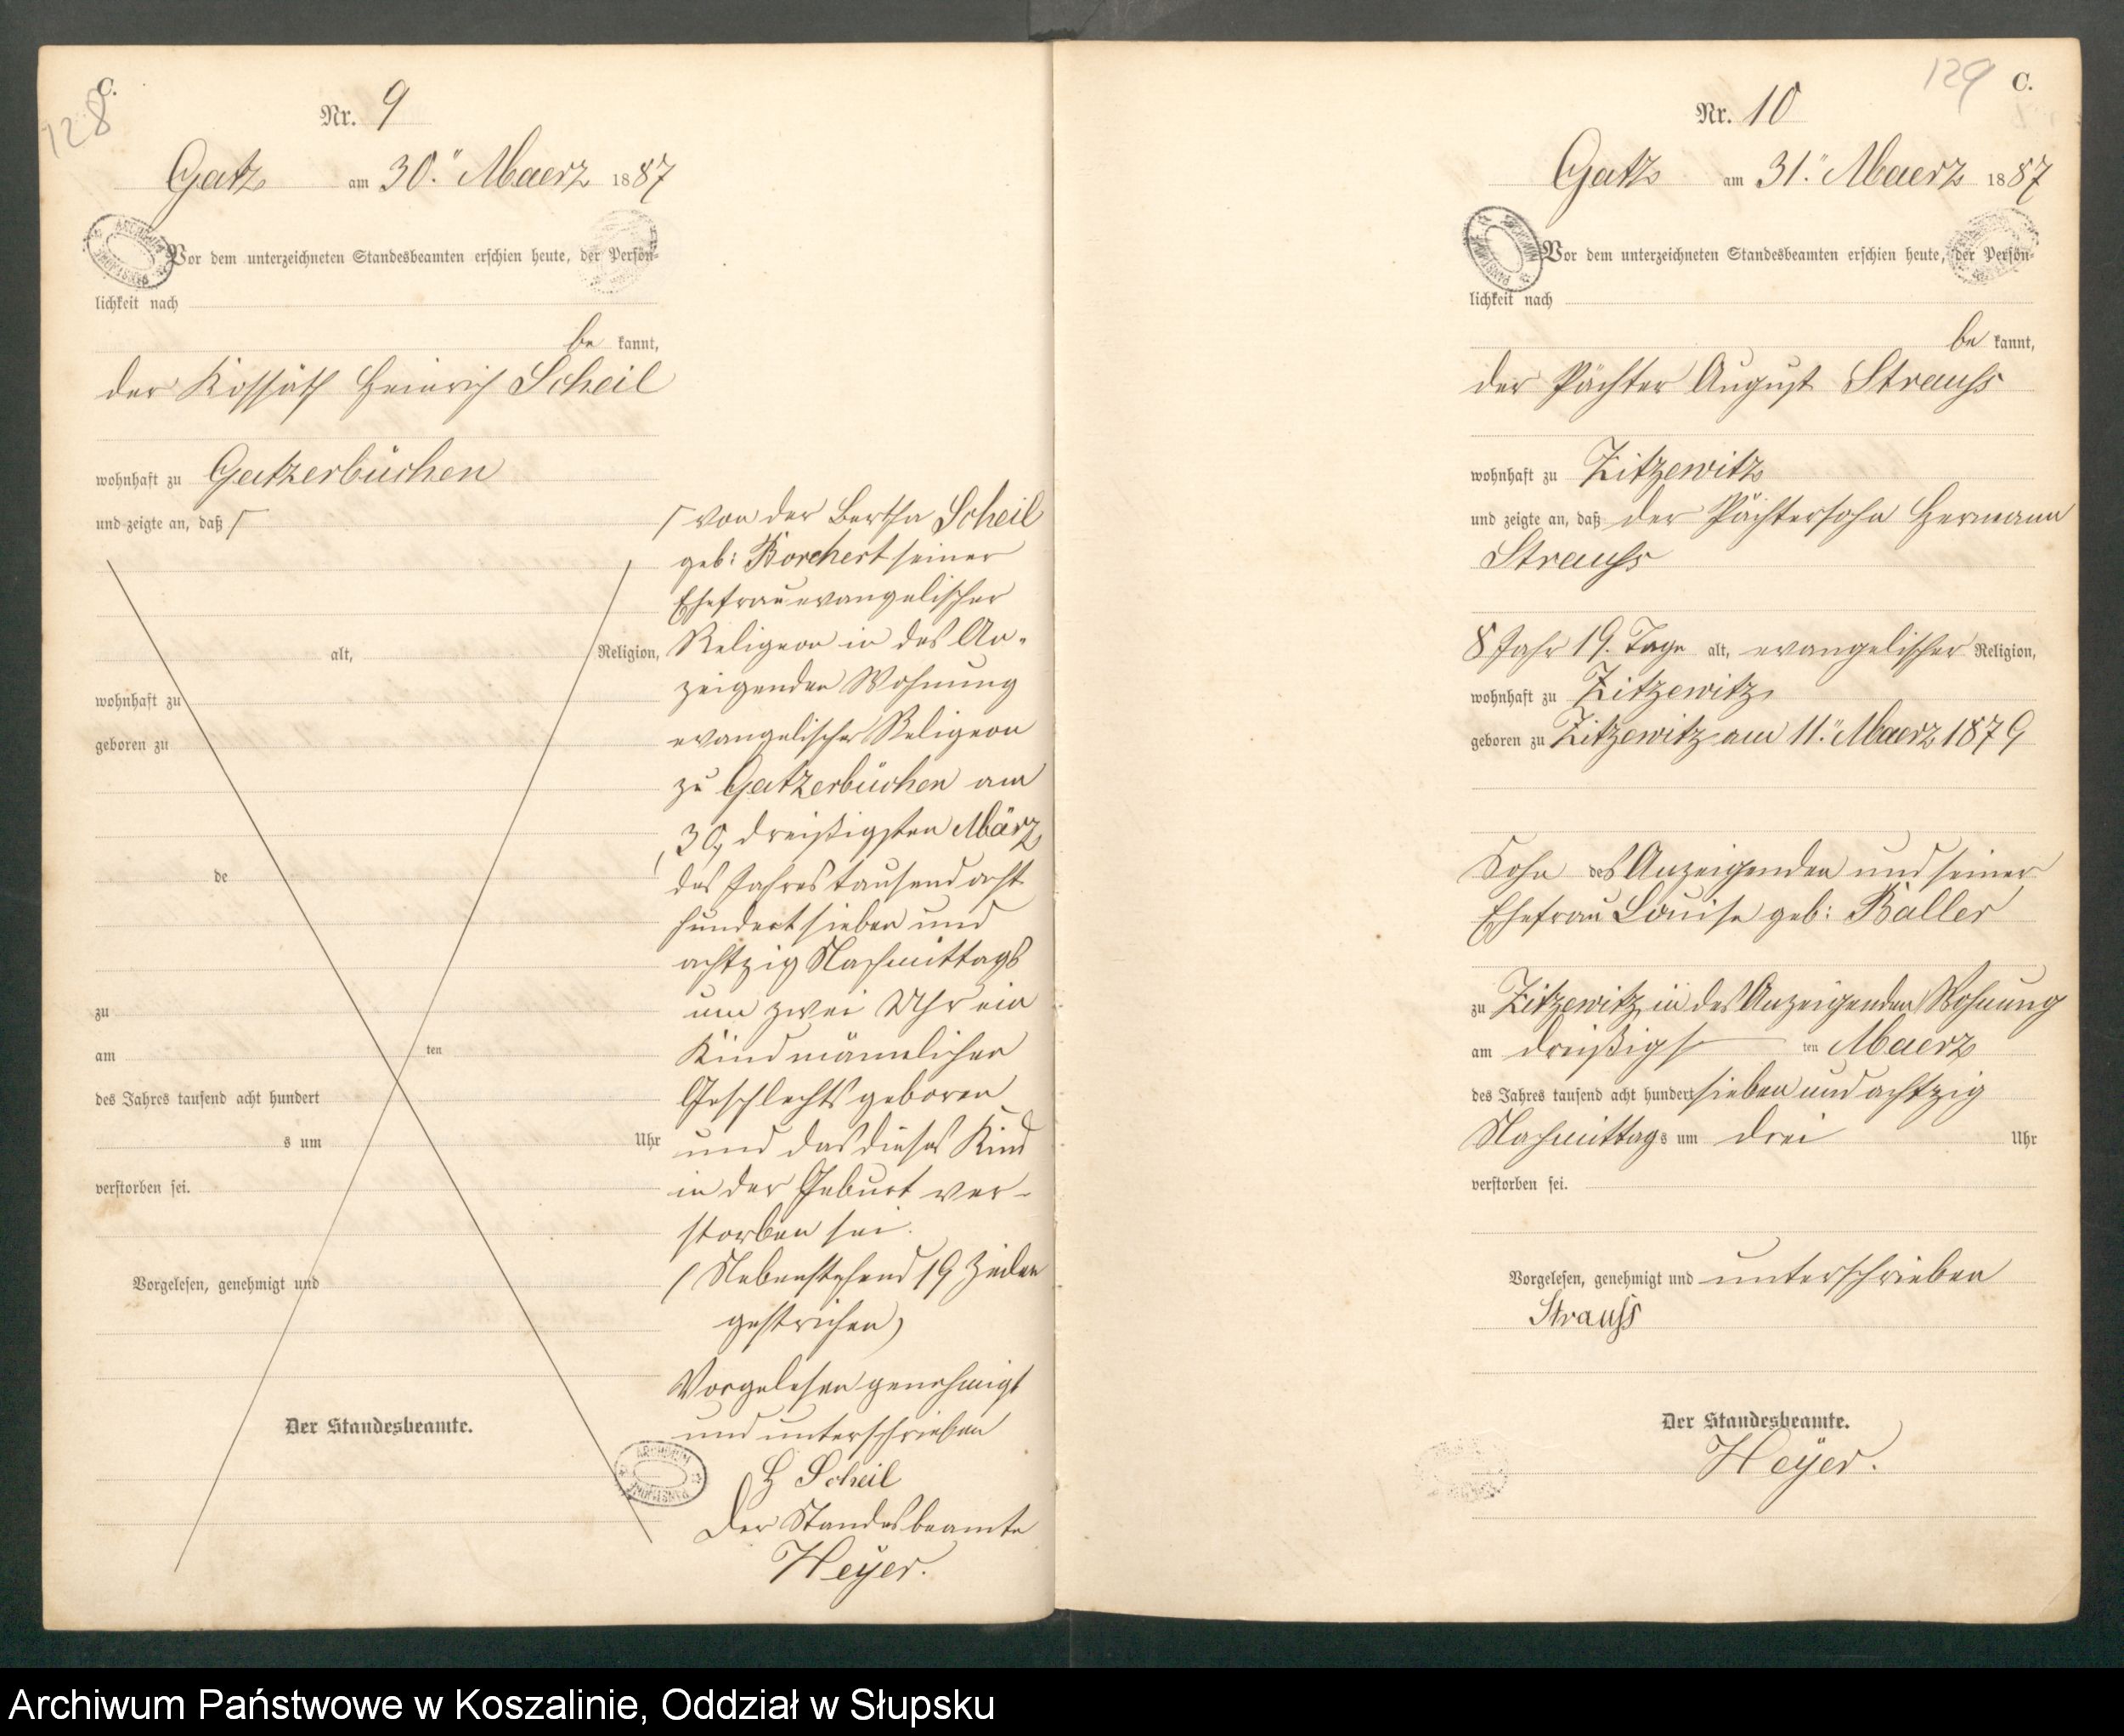 C.
128
Nr. 9
Gatz am 30.ʺ Maerz 1887
Vor dem unterzeichneten Standesbeamten erschien heute, der Persön-
lichkeit nach
be kannt,
der Kossäth Heinrich Scheil
wohnhaft zu Gatzerbüchen
und zeigte an, daß ⌈
alt, Religion,
wohnhaft zu
geboren zu
de
zu
am ten
des Jahres tausend acht hundert
s um Uhr
verstorben sei.
Vorgelesen, genehmigt und
Der Standesbeamte.
⌈ von der Bertha Scheil
geb: Borchert seiner
Ehefrau evangelischer
Religion in des An-
zeigenden Wohnung
evangelischer Religion
zu Gatzerbüchen am
30, dreißigsten März
des Jahres tausend acht
hundert sieben und
achtzig Nachmittags
um zwei Uhr ein
Kind männlichen
Geschlechts geboren
und das dieses Kind
in der Geburt ver-
storben sei.
(Nebenstehend 19 Zeilen
gestrichen)
Vorgelesen genehmigt
und unterschrieben
H Scheil
Der Standesbeamte
Heyer.
129 C.
Nr. 10
Gatz am 31.ʺ Maerz 1887
Vor dem unterzeichneten Standesbeamten erschien heute, der Persön-
lichkeit nach
be kannt,
der Pächter August Strauss
wohnhaft zu Zitzewitz
und zeigte an, daß der Pächtersohn Hermann
Strauss
8 Jahr 19. Tage alt, evangelischer Religion,
wohnhaft zu Zitzewitz
geboren zu Zitzewitz am 11.ʺ Maerz 1879
Sohn des Anzeigenden und seiner
Ehefrau Louise geb: Baller
zu Zitzewitz in des Anzeigenden Wohnung
am dreißigs ten Maerz
des Jahres tausend acht hundert sieben und achtzig
Nachmittags um drei Uhr
verstorben sei.
Vorgelesen, genehmigt und unterschrieben
Strauss
Der Standesbeamte.
Heyer.
Archiwum Państwowe w Koszalinie, Oddział w Słupsku